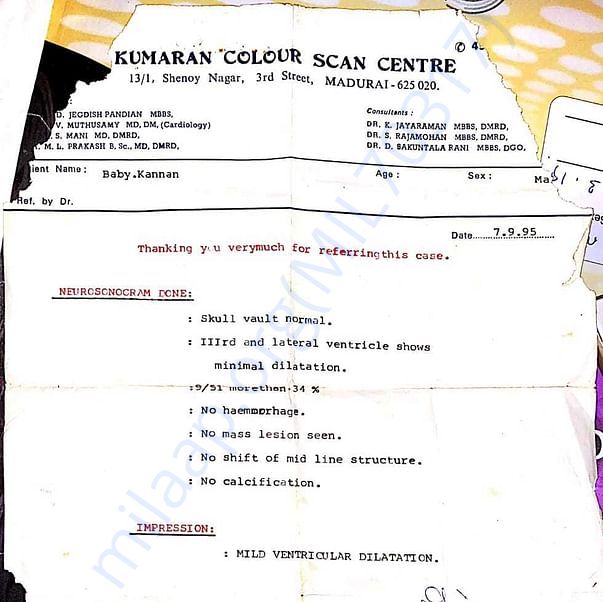 KUMARAN COLOUR SCAN CENTRE
13/1, Shenoy Nagar, 3rd Street, MADURAI - 625 020.
D. JEGDISH PANDIAN MBBS,
V. MUTHUSAMY MD, DM, (Cardiology)
S. MANI MD, DMRD,
M. L. PRAKASH B. Sc., MD, DMRD,
Consultants :
DR. K. JAYARAMAN MBBS, DMRD,
DR. S. RAJAMOHAN MBBS, DMRD,
DR. D. SAKUNTALA RANI MBBS, DGO,
ient Name : Baby.Kannan Age : Sex : Ma
Ref. by Dr.
Date 7.9.95
Thanking you verymuch for referringthis case.
NEUROSONOGRAM DONE:
: Skull vault normal.
: IIIrd and lateral ventricle shows
minimal dilatation.
morethen 34 %
: No haemmorhage.
: No mass lesion seen.
: No shift of mid line structure.
: No calcification.
IMPRESSION:
: MILD VENTRICULAR DILATATION.
milaap.org(MIL763177)